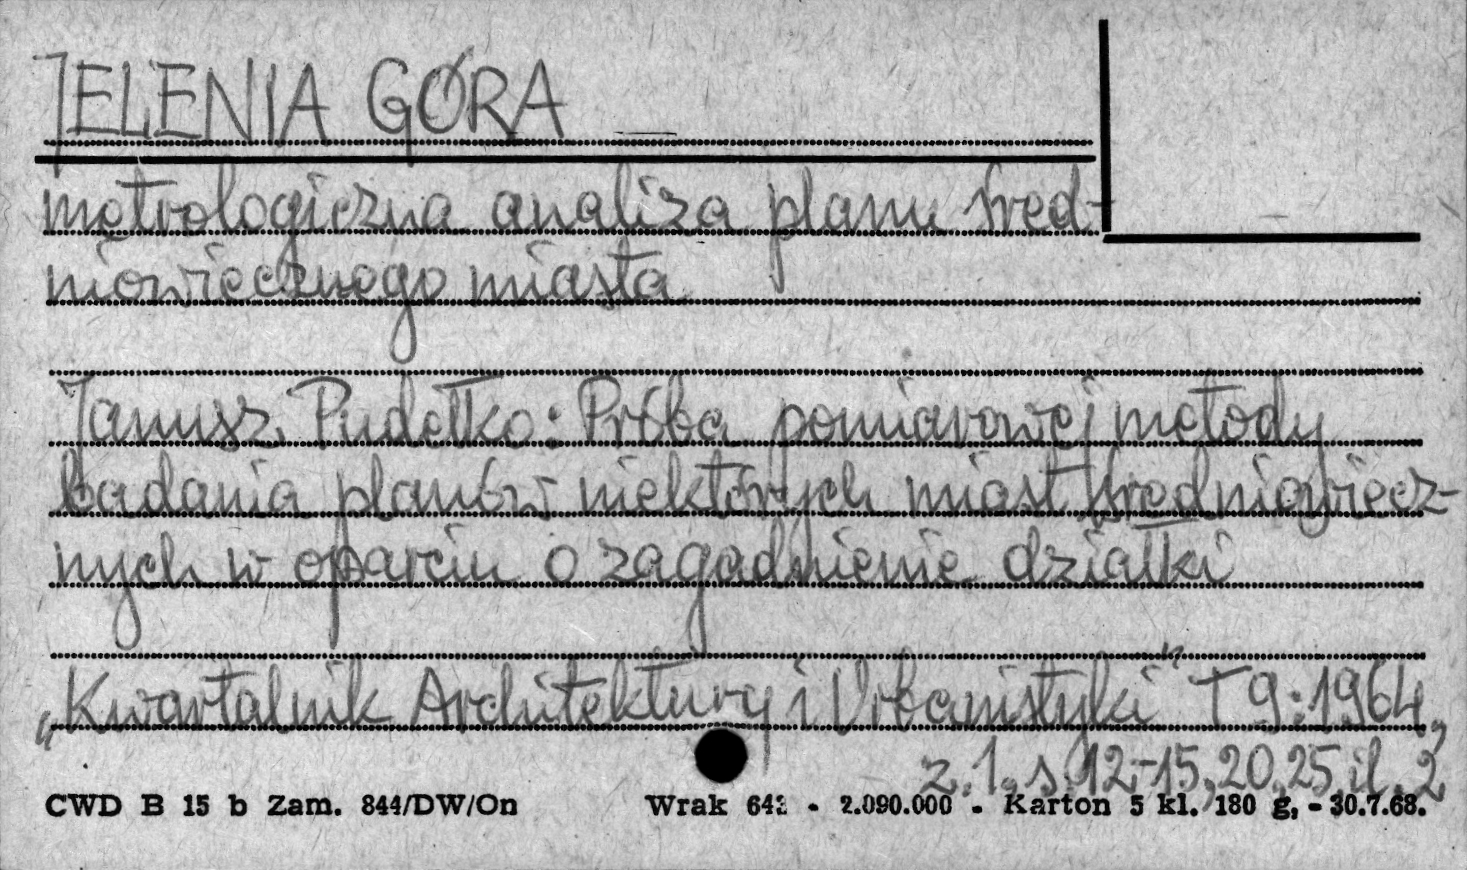 JELENIA GÓRA
metrologiczna analiza planu śred-
niowiecznego miasta
Janusz Pudełko: Próba pomiarowej metody
badania planów niektórych miast średniowiecz-
nych w oparciu o zagadnienie działki
„Kwartalnik Architektury i Urbanistyki" T 9:1964,
z. 1, s. 12-15, 20, 25, il. 2
CWD B 15 b Zam. 844/DW/On Wrak 642 - 2.090.000 - Karton 5 kl. 180 g, - 30.7.68.